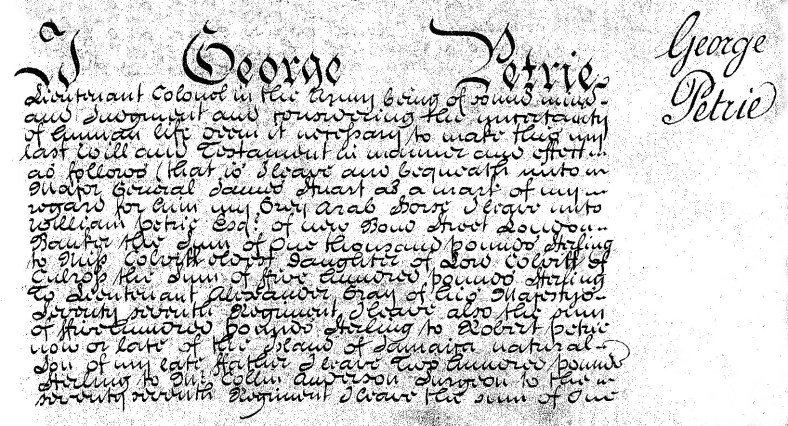 I George Petrie
George
Petrie
Lieutenant Colonel in the Army being of sound mind
and Judgment and considering the uncertainty
of human life deem it necessary to make this my
last Will and Testament in manner and effect
as follows that is I leave and bequeath unto
Major General James Stuart as a mark of my
regard for him my Grey Arab Horse I leave unto
William Petrie Esqr. of new Bond Street London
Banker the Sum of One thousand pounds Sterling
to Miss Colvill eldest Daughter of Lord Colvill of
Culross the Sum of five hundred pounds Sterling
To Lieutenant Alexander Gray of his Majestys
Seventy seventh Regiment I leave also the sum
of five hundred pounds Sterling to Robert Petrie
now or late of the Island of Jamaica natural
Son of my late Father I leave Two hundred pounds
Sterling to Mr. Collin Anderson Surgeon to the
seventy seventh Regiment I leave the sum of One